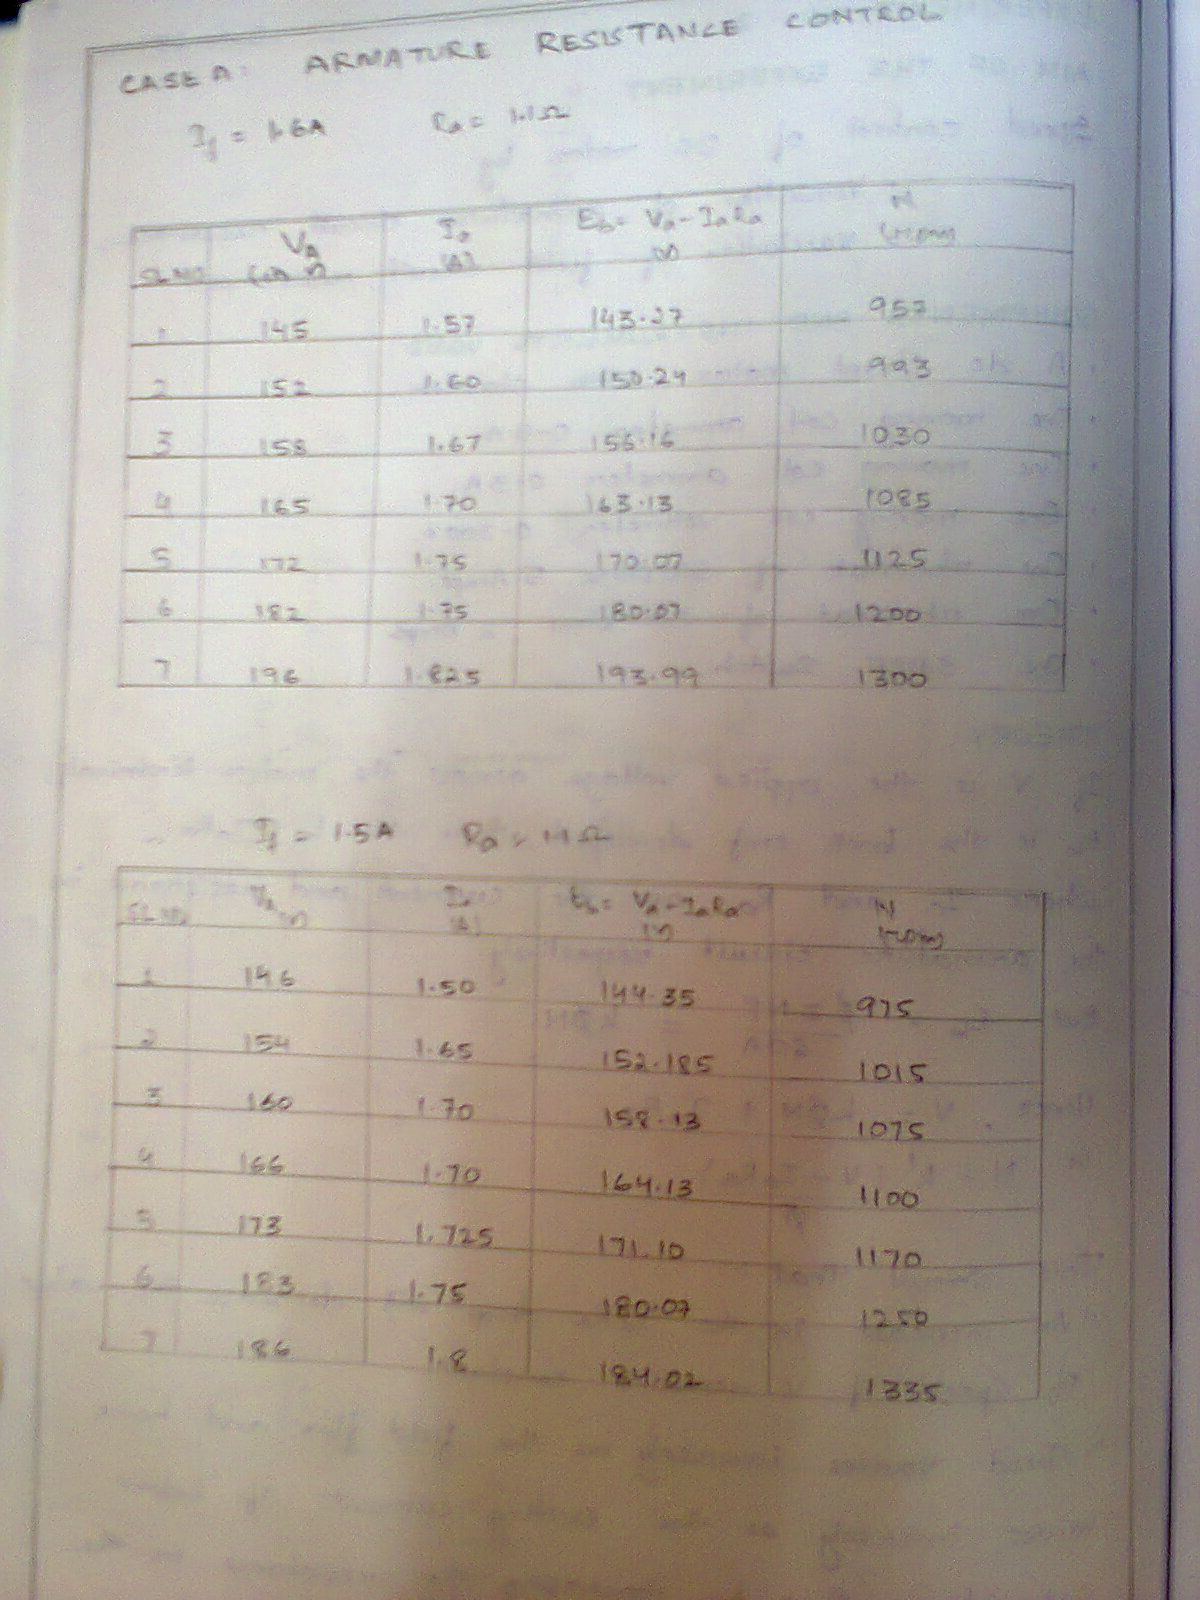 CASE A: ARMATURE RESISTANCE CONTROL
If = 1.6A Ra = 1.1Ω
SL.NO. VA (V) Ia (A) Eb = Va - IaRa (V) N (rpm)
1 145 1.57 143.27 957
2 152 1.60 150.24 993
3 158 1.67 156.16 1030
4 165 1.70 163.13 1085
5 172 1.75 170.07 1125
6 182 1.75 180.07 1200
7 196 1.825 193.99 1300
If = 1.5A Ra = 1.1Ω
SL.NO. Va (V) Ia (A) Eb = Va - IaRa (V) N (rpm)
1 146 1.50 144.35 975
2 154 1.65 152.185 1015
3 160 1.70 158.13 1075
4 166 1.70 164.13 1100
5 173 1.725 171.10 1170
6 183 1.75 180.07 1250
7 186 1.8 184.02 1335